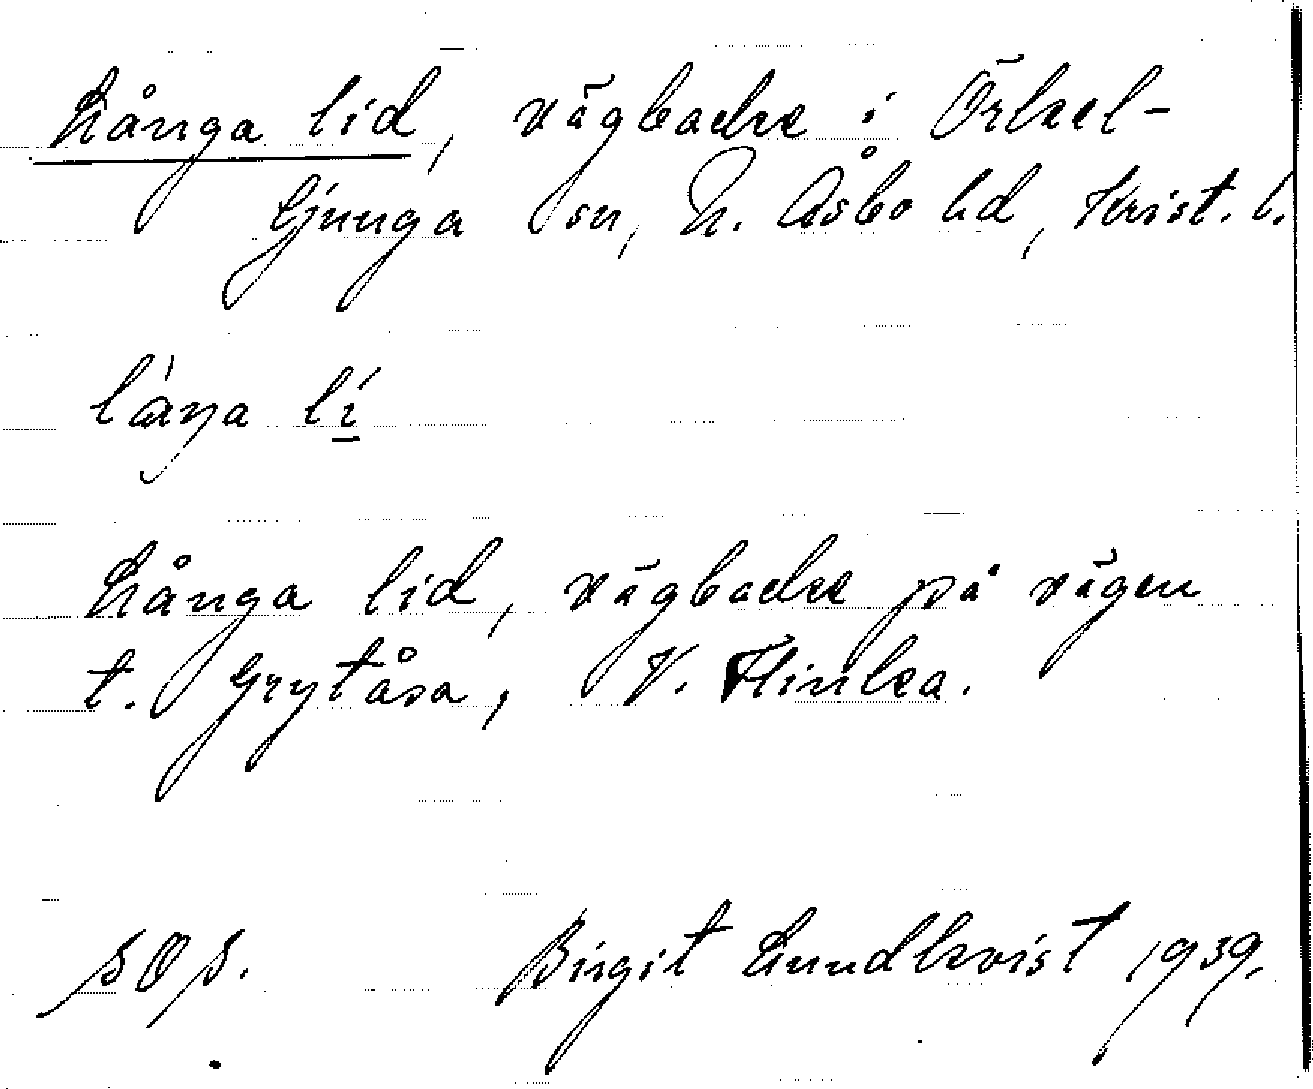 Långa lid, vägbacke i Örkel-
ljunga sn, N. Åsbo hd, Krist. l.
låŋa lí
Långa lid, vägbacke på vägen
t. Grytåsa, V. Flinka.
SOS. Birgit Lundkvist 1939.